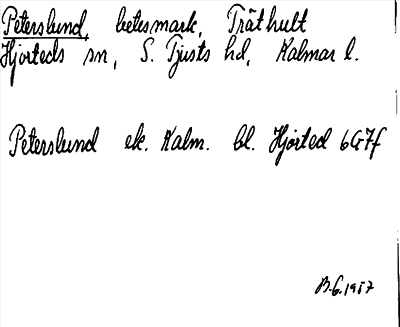 Peterslund, betesmark, Träthult
Hjorteds sn, S. Tjusts hd, Kalmar l.
Peterslund ek. Kalm. bl. Hjorted 6G7f
B.G. 1957